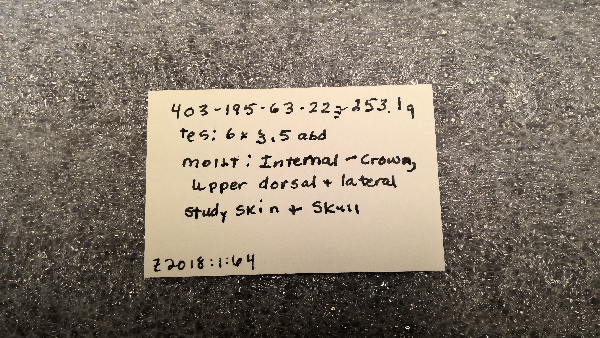 403-195-63-22=253.1g
tes: 6x3.5 abd
molt: Internal - Crown,
upper dorsal + lateral
study skin + skull
Z2018:1:64